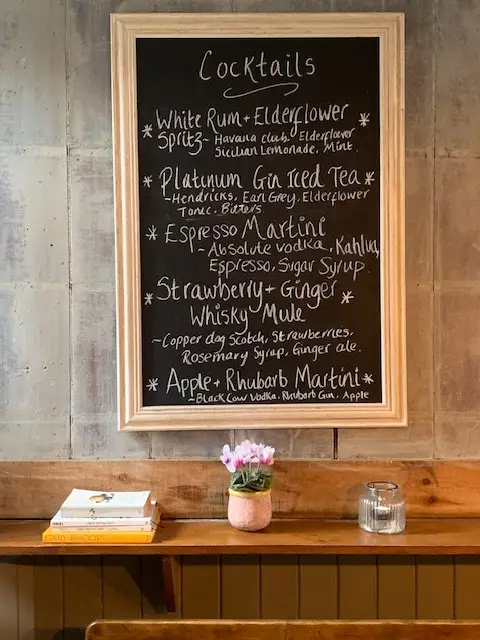 Cocktails
* White Rum + Elderflower *
Spritz ~ Havana club. Elderflower
Sicilian Lemonade, Mint.
* Platinum Gin Iced Tea *
~ Hendricks, Earl Grey, Elderflower
Tonic, Bitters
* Espresso Martini
~ Absolute vodka, Kahlua,
Espresso, Sugar Syrup.
* Strawberry + Ginger *
Whisky Mule
~ Copper dog Scotch, Strawberries,
Rosemary Syrup, Ginger ale.
* Apple + Rhubarb Martini *
~ Black Cow Vodka, Rhubarb Gin, Apple